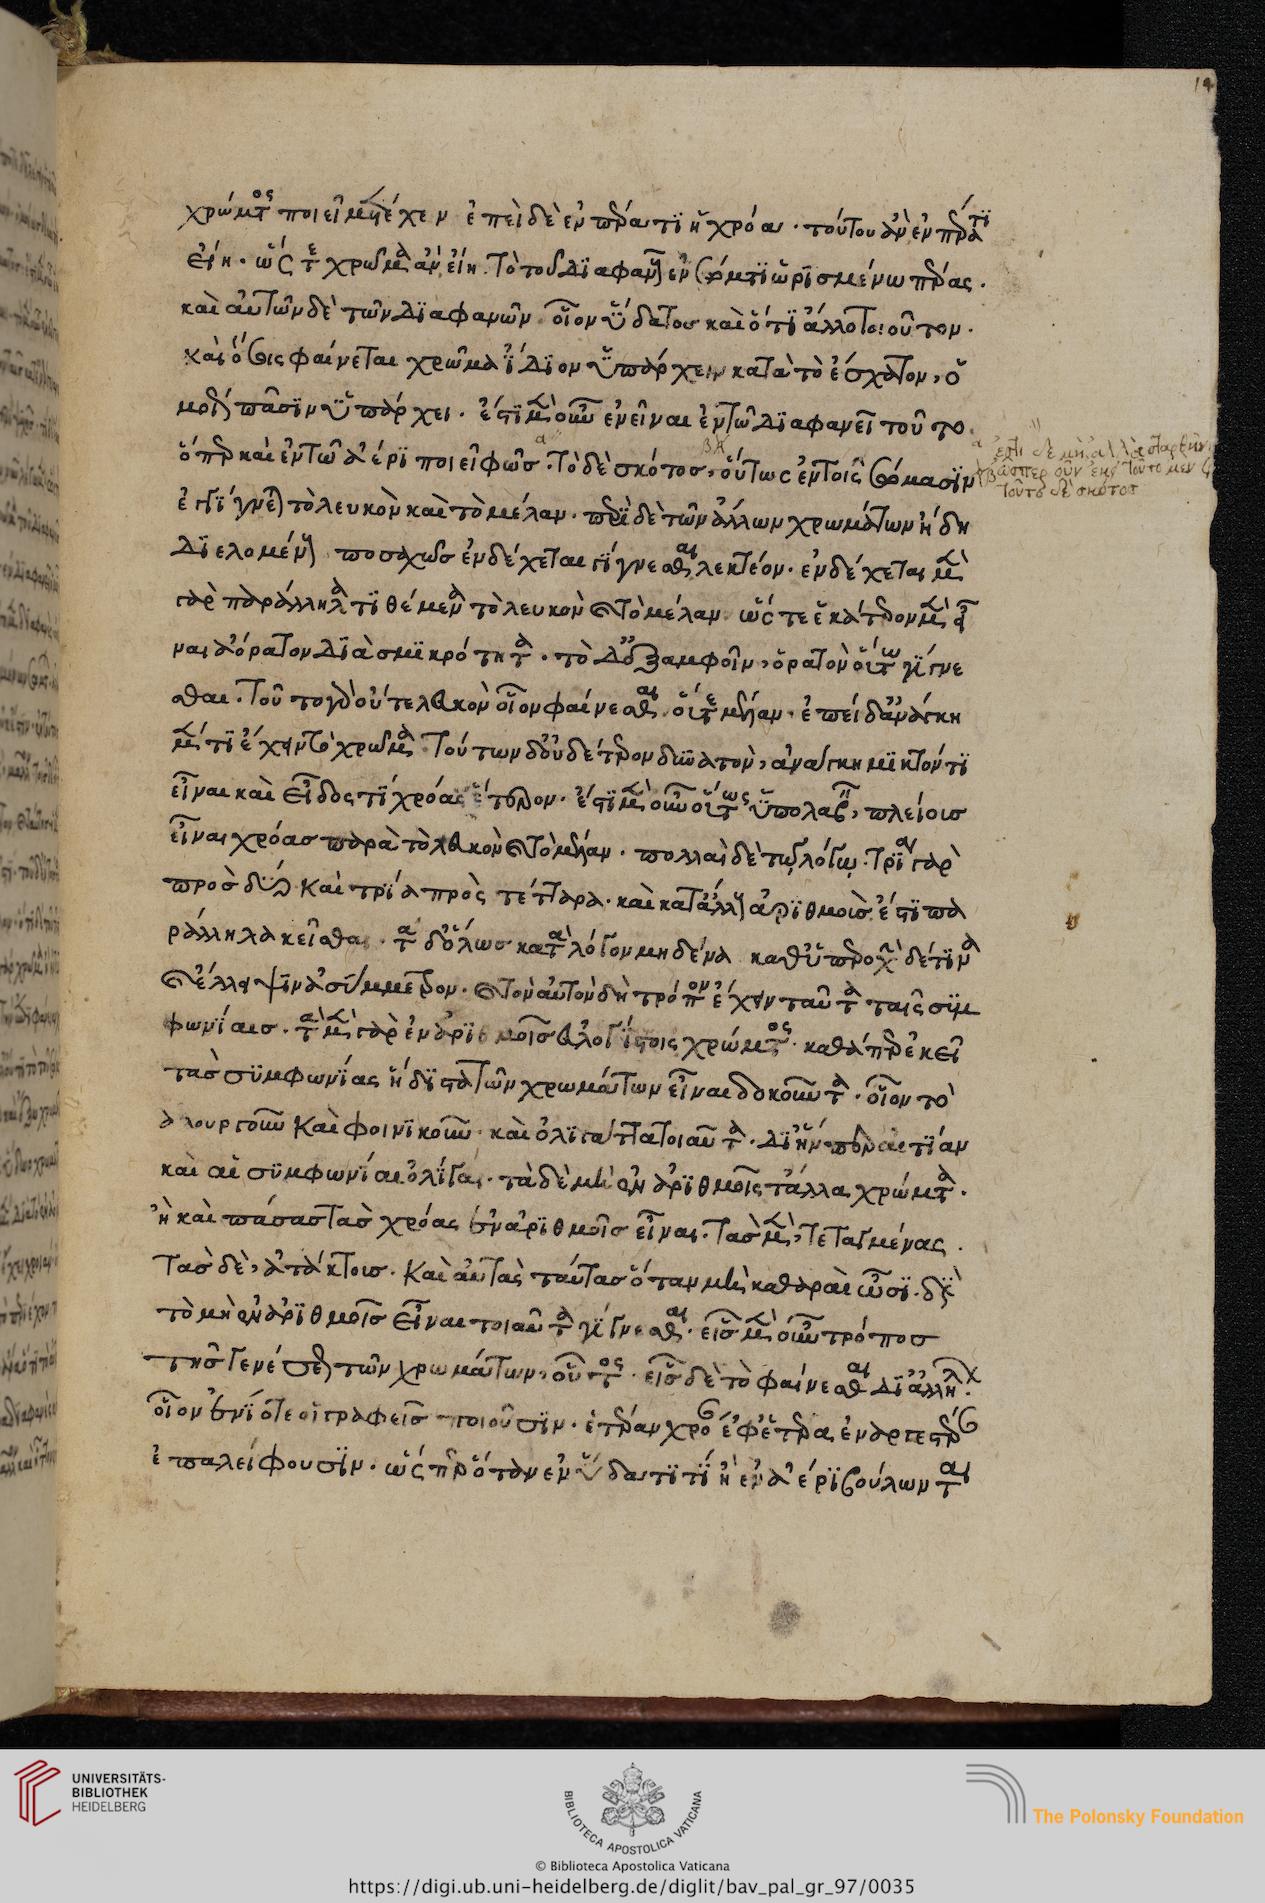 14
χρώματος ποιεῖ μετέχειν ἐπεὶ δὲ ἐν πέρατι ἡ χρόα · τούτου ἂν ἐν πέρατι
εἴη · ὥστε χρῶμα ἂν εἴη τὸ τοῦ διαφανοῦς ἐν σώματι ὡρισμένω πέρας ·
καὶ αὐτῶν δὲ τῶν διαφανῶν οἷον ὕδατος καὶ ὅτι ἄλλο τοιοῦτον ·
καὶ ὅσοις φαίνεται χρῶμα ἴδιον ὑπάρχειν κατὰ τὸ ἔσχατον, ὁ
μοίως πᾶσιν ὑπάρχει · ἔστι μὲν οὖν ἐνεῖναι ἐν τῶ διαφανεῖ τοῦτο
ὅπερ καὶ ἐν τῶ ἀέρι ποιεῖ φῶς · τὸ δὲ σκότος, οὕτως ἐν τοῖς σώμασιν
ἐγγίγνεται τὸ λευκὸν καὶ τὸ μέλαν · περὶ δὲ τῶν ἄλλων χρωμάτων ἤδη
διελομένους ποσαχῶς ἐνδέχεται γίγνεσθαι λεκτέον · ἐνδέχεται μὲν
γὰρ παράλληλα τιθέμενα τὸ λευκὸν καὶ τὸ μέλαν ὥστε ἑκάτερον μὲν εἶ
ναι ἀόρατον διὰ σμικρότητα · τὸ δ' ἐξ ἀμφοῖν, ὁρατὸν οὕτω γίγνε
σθαι · τοῦτο γὰρ οὔτε λευκὸν οἷόν φαίνεσθαι οὔτε μέλαν · ἐπεὶ δ' ἀνάγκη
μέν τι ἔχειν τὸ χρῶμα τούτων δ' οὐδέτερον δυνατὸν, ἀνάγκη μικτόν τι
εἶναι καὶ εἶδός τι χρόας ἕτερον · ἔστι μὲν οὖν οὕτως ὑπολαβεῖν, πλείους
εἶναι χρόας παρὰ τὸ λευκὸν καὶ τὸ μέλαν · πολλαὶ δὲ τῷ λόγῳ · τρία γὰρ
πρὸς δύο καὶ τρία πρὸς τέτταρα · καὶ κατ' ἄλλους ἀριθμοὺς ἔστι πα
ράλληλα κεῖσθαι · τὰ δ' ὅλως κατὰ λόγον μηδένα καθ' ὑπεροχὴν δέ τινα
καὶ ἔλλειψιν ἀσύμμετρον · καὶ τὸν αὐτὸν δὴ τρόπον ἔχειν ταῦτα ταῖς συμ
φωνίαις · τὰ μὲν γὰρ ἐν ἀριθμοῖς εὐλογίστοις χρώματα · καθάπερ ἐκεῖ
τὰς συμφωνίας ἥδιστα τῶν χρωμάτων εἶναι δοκοῦντα · οἷον τὸ
ἁλουργοῦν καὶ φοινικοῦν καὶ ὀλίγ' ἄττα τοιαῦτα · δι' ἥνπερ αἰτίαν
καὶ αἱ συμφωνίαι ὀλίγαι · τὰ δὲ μὴ ἐν ἀριθμοῖς τἄλλα χρώματα ·
ἢ καὶ πάσας τὰς χρόας ἐν ἀριθμοῖς εἶναι · τὰς μὲν, τεταγμένας ·
τὰς δὲ, ἀτάκτους · καὶ αὐτὰς ταύτας ὅταν μὴ καθαραὶ ὦσι · διὰ
τὸ μὴ ἐν ἀριθμοῖς εἶναι τοιαῦτα γίγνεσθαι · εἷς μὲν οὖν τρόπος
τῆς γενέσεως τῶν χρωμάτων, οὗτος · εἷς δὲ τὸ φαίνεσθαι δι' ἀλλήλων ·
οἷον ἐνίοτε οἱ γραφεῖς ποιοῦσιν · ἑτέραν χρόαν ἐφ' ἑτέραν ἐναργεστέραν
ἐπαλείφουσιν · ὥσπερ ὅταν ἐν ὕδατι τι ἢ ἐν ἀέρι βούλωνται
UNIVERSITÄTS-
BIBLIOTHEK
HEIDELBERG
BIBLIOTECA APOSTOLICA VATICANA
The Polonsky Foundation
© Biblioteca Apostolica Vaticana
https://digi.ub.uni-heidelberg.de/diglit/bav_pal_gr_97/0035